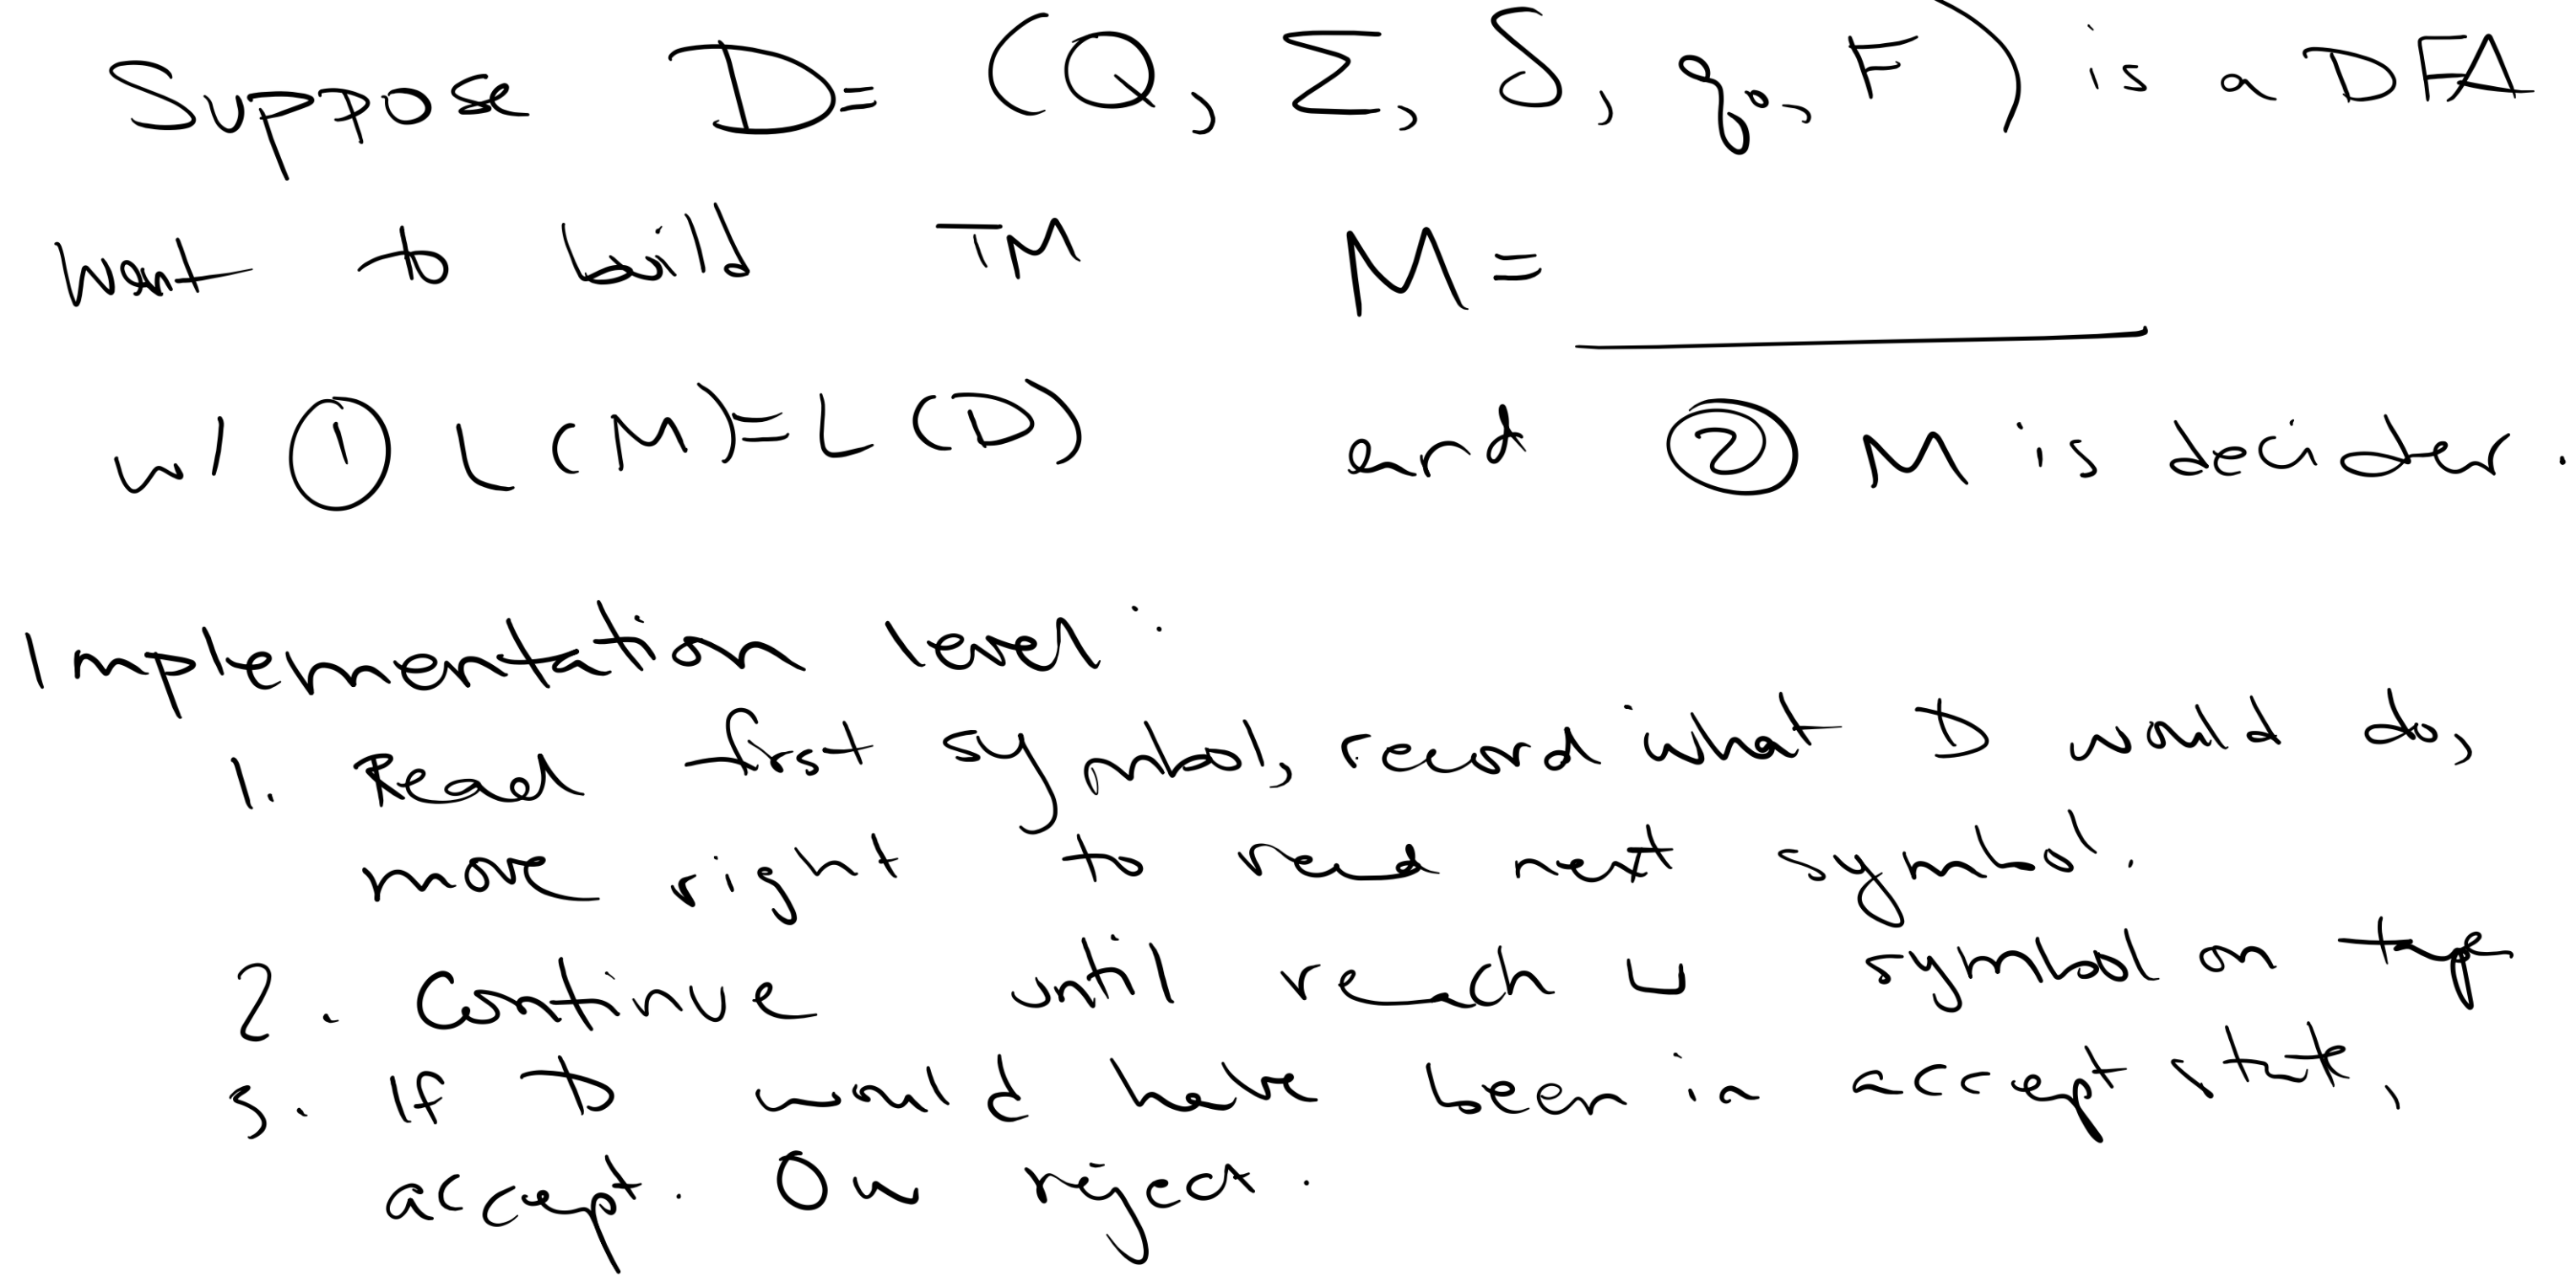 Suppose D= (Q, Σ, δ, q₀, F) is a DFA
want to build TM M = ________
w/ ① L(M)=L(D) and ② M is decider.
Implementation level:
1. Read first symbol, record what D would do,
move right to read next symbol.
2. Continue until reach ␣ symbol on tape
3. If D would have been in accept state,
accept. Ow reject.